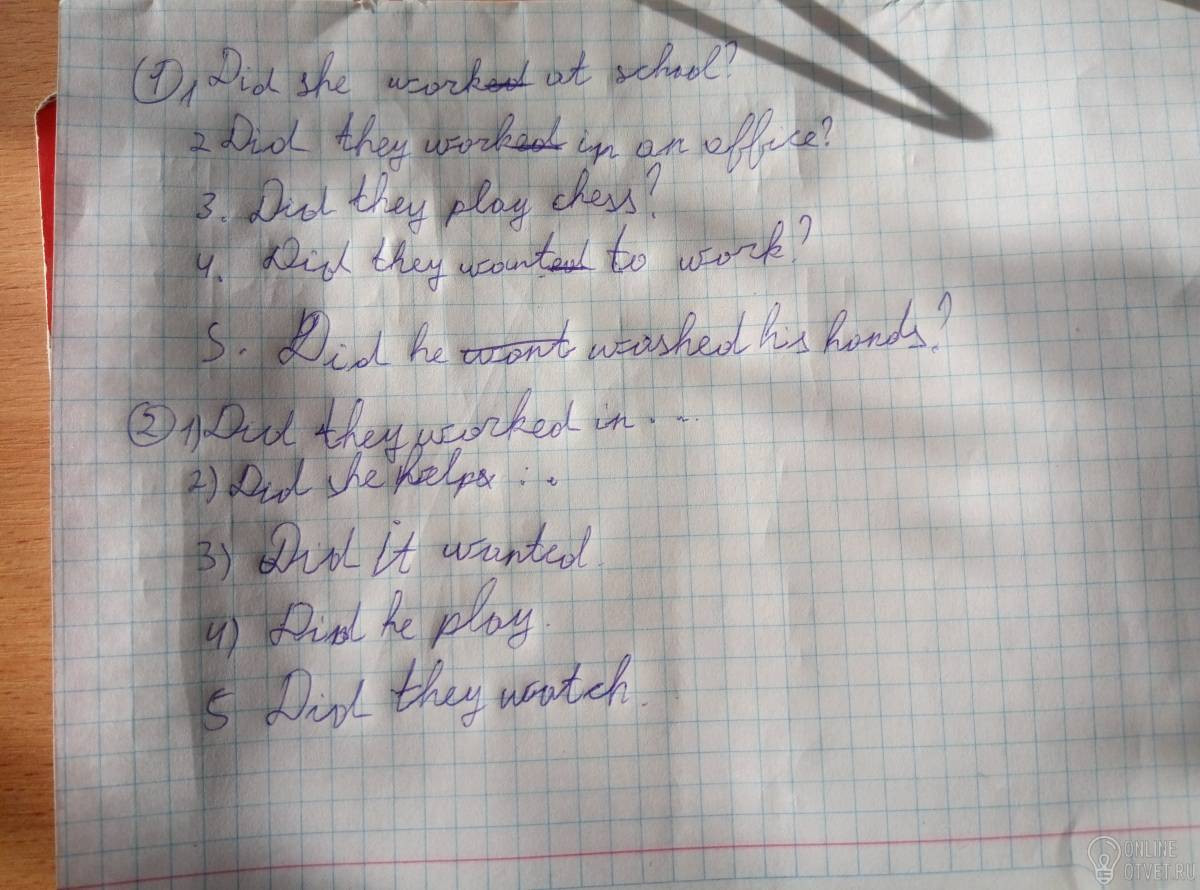 ① 1 Did she worked at school?
2 Did they worked in an office?
3. Did they play chess?
4. Did they wanted to work?
5. Did he want washed his hands?
② 1) Did they worked in...
2) Did she help :.
3) Did it wanted.
4) Did he play.
5 Did they watch.
ONLINE
OTVET.RU